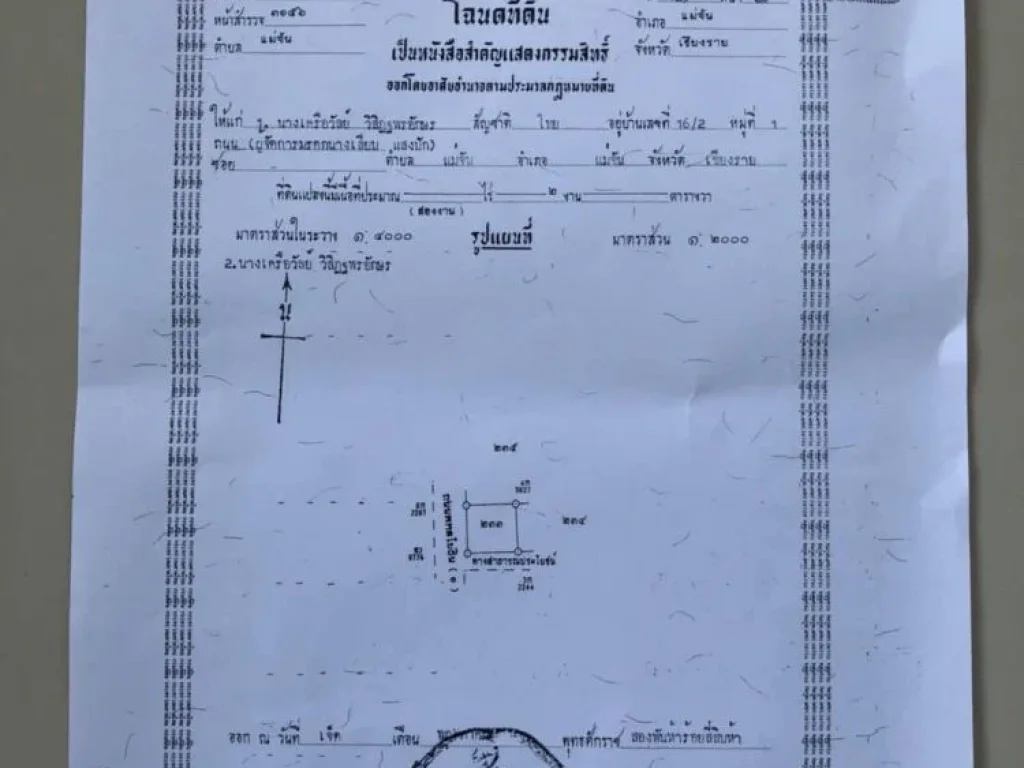 หน้าสำรวจ ๓๑๔๖
โฉนดที่ดิน
อำเภอ แม่จัน
ตำบล แม่จัน
เป็นหนังสือสำคัญแสดงกรรมสิทธิ์
จังหวัด เชียงราย
ออกโดยอาศัยอำนาจตามประมวลกฎหมายที่ดิน
ให้แก่ ๑. นางเครือวัลย์ วิสิฏฐพรอักษร สัญชาติ ไทย อยู่บ้านเลขที่ 16/2 หมู่ที่ 1
ถนน (ผู้จัดการมรดกนางเลียบ แสงบัก)
ซอย ตำบล แม่จัน อำเภอ แม่จัน จังหวัด เชียงราย
ที่ดินแปลงนี้มีเนื้อที่ประมาณ ไร่ ๒ งาน ตารางวา
(สองงาน)
มาตราส่วนในระวาง ๑:๔๐๐๐
รูปแผนที่
มาตราส่วน ๑:๒๐๐๐
๒.นางเครือวัลย์ วิสิฏฐพรอักษร
น
๒๓๕
๒๓๓
๒๓๔
ถนนพหลโยธิน (๑)
ทางสาธารณประโยชน์
2244
ออก ณ วันที่ เจ็ด เดือน พุทธศักราช สองพันห้าร้อยยี่สิบห้า